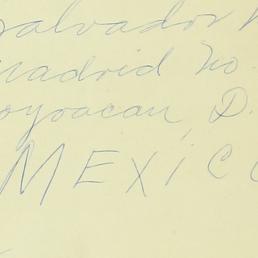 alvador N
Madrid No.
oyoacan, D.
MEXICO